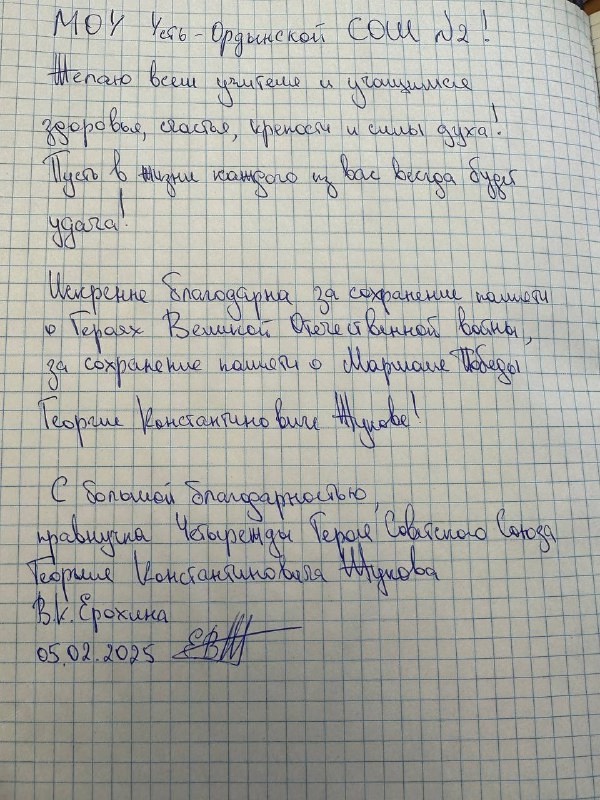 МОУ Усть-Ордынской СОШ №2!
Желаю всем учителям и учащимся
здоровья, счастья, крепости и силы духа!
Пусть в жизни каждого из вас всегда будет
удача!
Искренне благодарна за сохранение памяти
о Героях Великой Отечественной войны,
за сохранение памяти о Маршале Победы
Георгие Константиновиче Жукове!
С большой благодарностью,
правнучка Четырежды Героя Советского Союза
Георгия Константиновича Жукова
В.К. Ерохина
05.02.2025